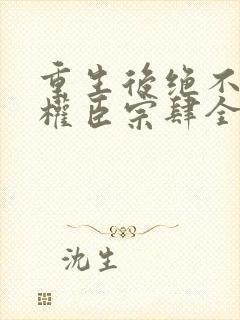 重生後绝不
權臣宗肆全
沈生